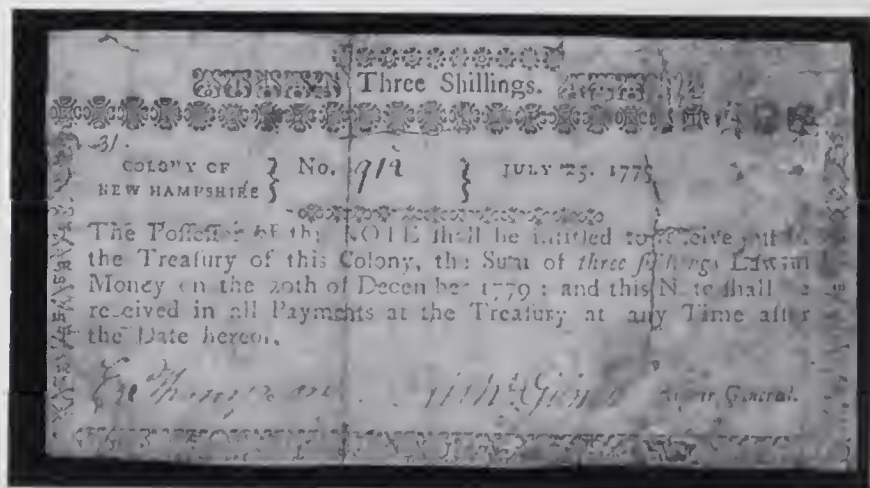 Three Shillings.
3/.
COLONY OF } No. 912 } JULY 25. 1775
NEW HAMPSHIRE
The Poſſeſſor of this NOTE ſhall be intitled to receive out of
the Treaſury of this Colony, the Sum of three ſhillings Lawful
Money on the 20th of December 1779 : and this Note ſhall be
received in all Payments at the Treaſury at any Time after
the Date hereof.
General.